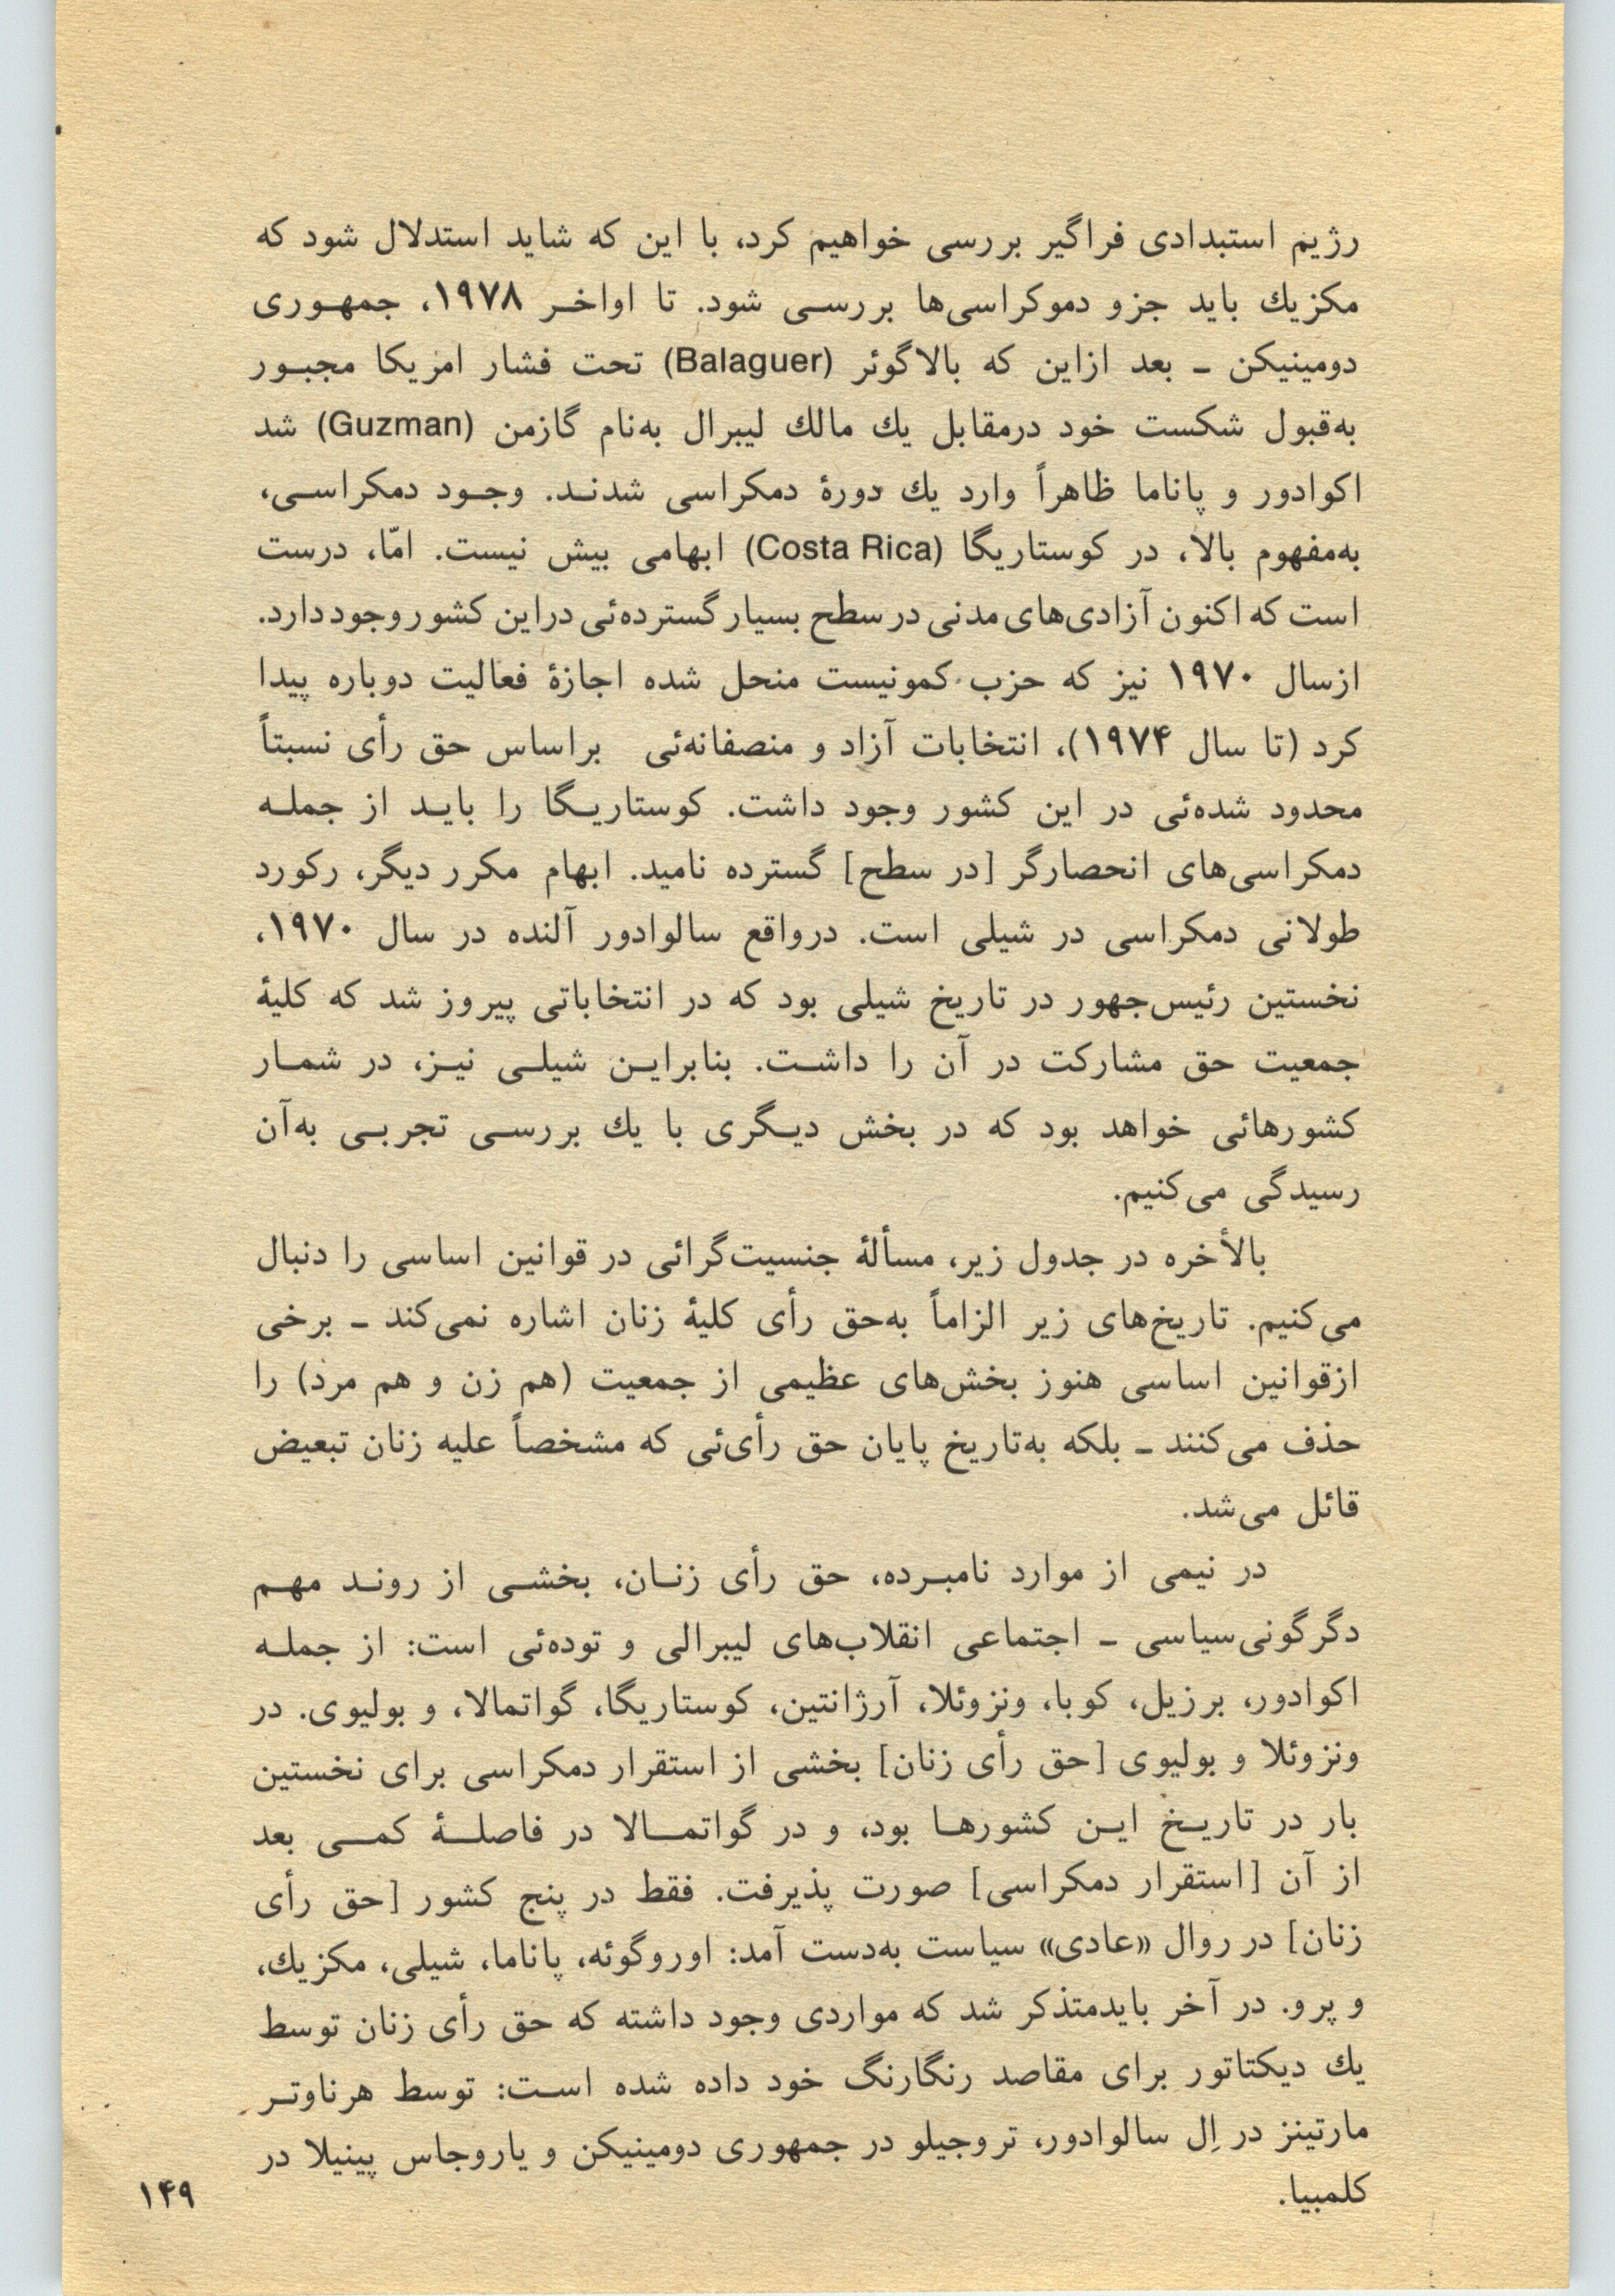 رژیم استبدادی فراگیر بررسی خواهیم کرد، با این که شاید استدلال شود که
مکزیك باید جزو دموکراسی‌ها بررسی شود. تا اواخر ۱۹۷۸، جمهوری
دومینیکن ـ بعد ازاین که بالاگوئر (Balaguer) تحت فشار امریکا مجبور
به‌قبول شکست خود درمقابل یك مالك لیبرال به‌نام گازمن (Guzman) شد
اکوادور و پاناما ظاهراً وارد یك دورهٔ دمکراسی شدند. وجود دمکراسی،
به‌مفهوم بالا، در کوستاریگا (Costa Rica) ابهامی بیش نیست. امّا، درست
است که اکنون آزادی‌های مدنی در سطح بسیار گسترده‌ئی دراین کشور وجود دارد.
ازسال ۱۹۷۰ نیز که حزب کمونیست منحل شده اجازهٔ فعالیت دوباره پیدا
کرد (تا سال ۱۹۷۴)، انتخابات آزاد و منصفانه‌ئی براساس حق رأی نسبتاً
محدود شده‌ئی در این کشور وجود داشت. کوستاریگا را باید از جمله
دمکراسی‌های انحصارگر [در سطح] گسترده نامید. ابهام مکرر دیگر، رکورد
طولانی دمکراسی در شیلی است. درواقع سالوادور آلنده در سال ۱۹۷۰،
نخستین رئیس‌جهور در تاریخ شیلی بود که در انتخاباتی پیروز شد که کلیهٔ
جمعیت حق مشارکت در آن را داشت. بنابراین شیلی نیز، در شمار
کشورهائی خواهد بود که در بخش دیگری با یك بررسی تجربی به‌آن
رسیدگی می‌کنیم.
بالأخره در جدول زیر، مسألهٔ جنسیت‌گرائی در قوانین اساسی را دنبال
می‌کنیم. تاریخ‌های زیر الزاماً به‌حق رأی کلیهٔ زنان اشاره نمی‌کند ـ برخی
ازقوانین اساسی هنوز بخش‌های عظیمی از جمعیت (هم زن و هم مرد) را
حذف می‌کنند ـ بلکه به‌تاریخ پایان حق رأی‌ئی که مشخصاً علیه زنان تبعیض
قائل می‌شد.
در نیمی از موارد نامبرده، حق رأی زنان، بخشی از روند مهم
دگرگونی‌سیاسی ـ اجتماعی انقلاب‌های لیبرالی و توده‌ئی است: از جمله
اکوادور، برزیل، کوبا، ونزوئلا، آرژانتین، کوستاریگا، گواتمالا، و بولیوی. در
ونزوئلا و بولیوی [حق رأی زنان] بخشی از استقرار دمکراسی برای نخستین
بار در تاریخ این کشورها بود، و در گواتمالا در فاصلهٔ کمی بعد
از آن [استقرار دمکراسی] صورت پذیرفت. فقط در پنج کشور [حق رأی
زنان] در روال «عادی» سیاست به‌دست آمد: اوروگوئه، پاناما، شیلی، مکزیك،
و پرو. در آخر بایدمتذکر شد که مواردی وجود داشته که حق رأی زنان توسط
یك دیکتاتور برای مقاصد رنگارنگ خود داده شده است: توسط هرناوتر
مارتینز در اِل سالوادور، تروجیلو در جمهوری دومینیکن و یاروجاس پینیلا در
کلمبیا.
۱۴۹